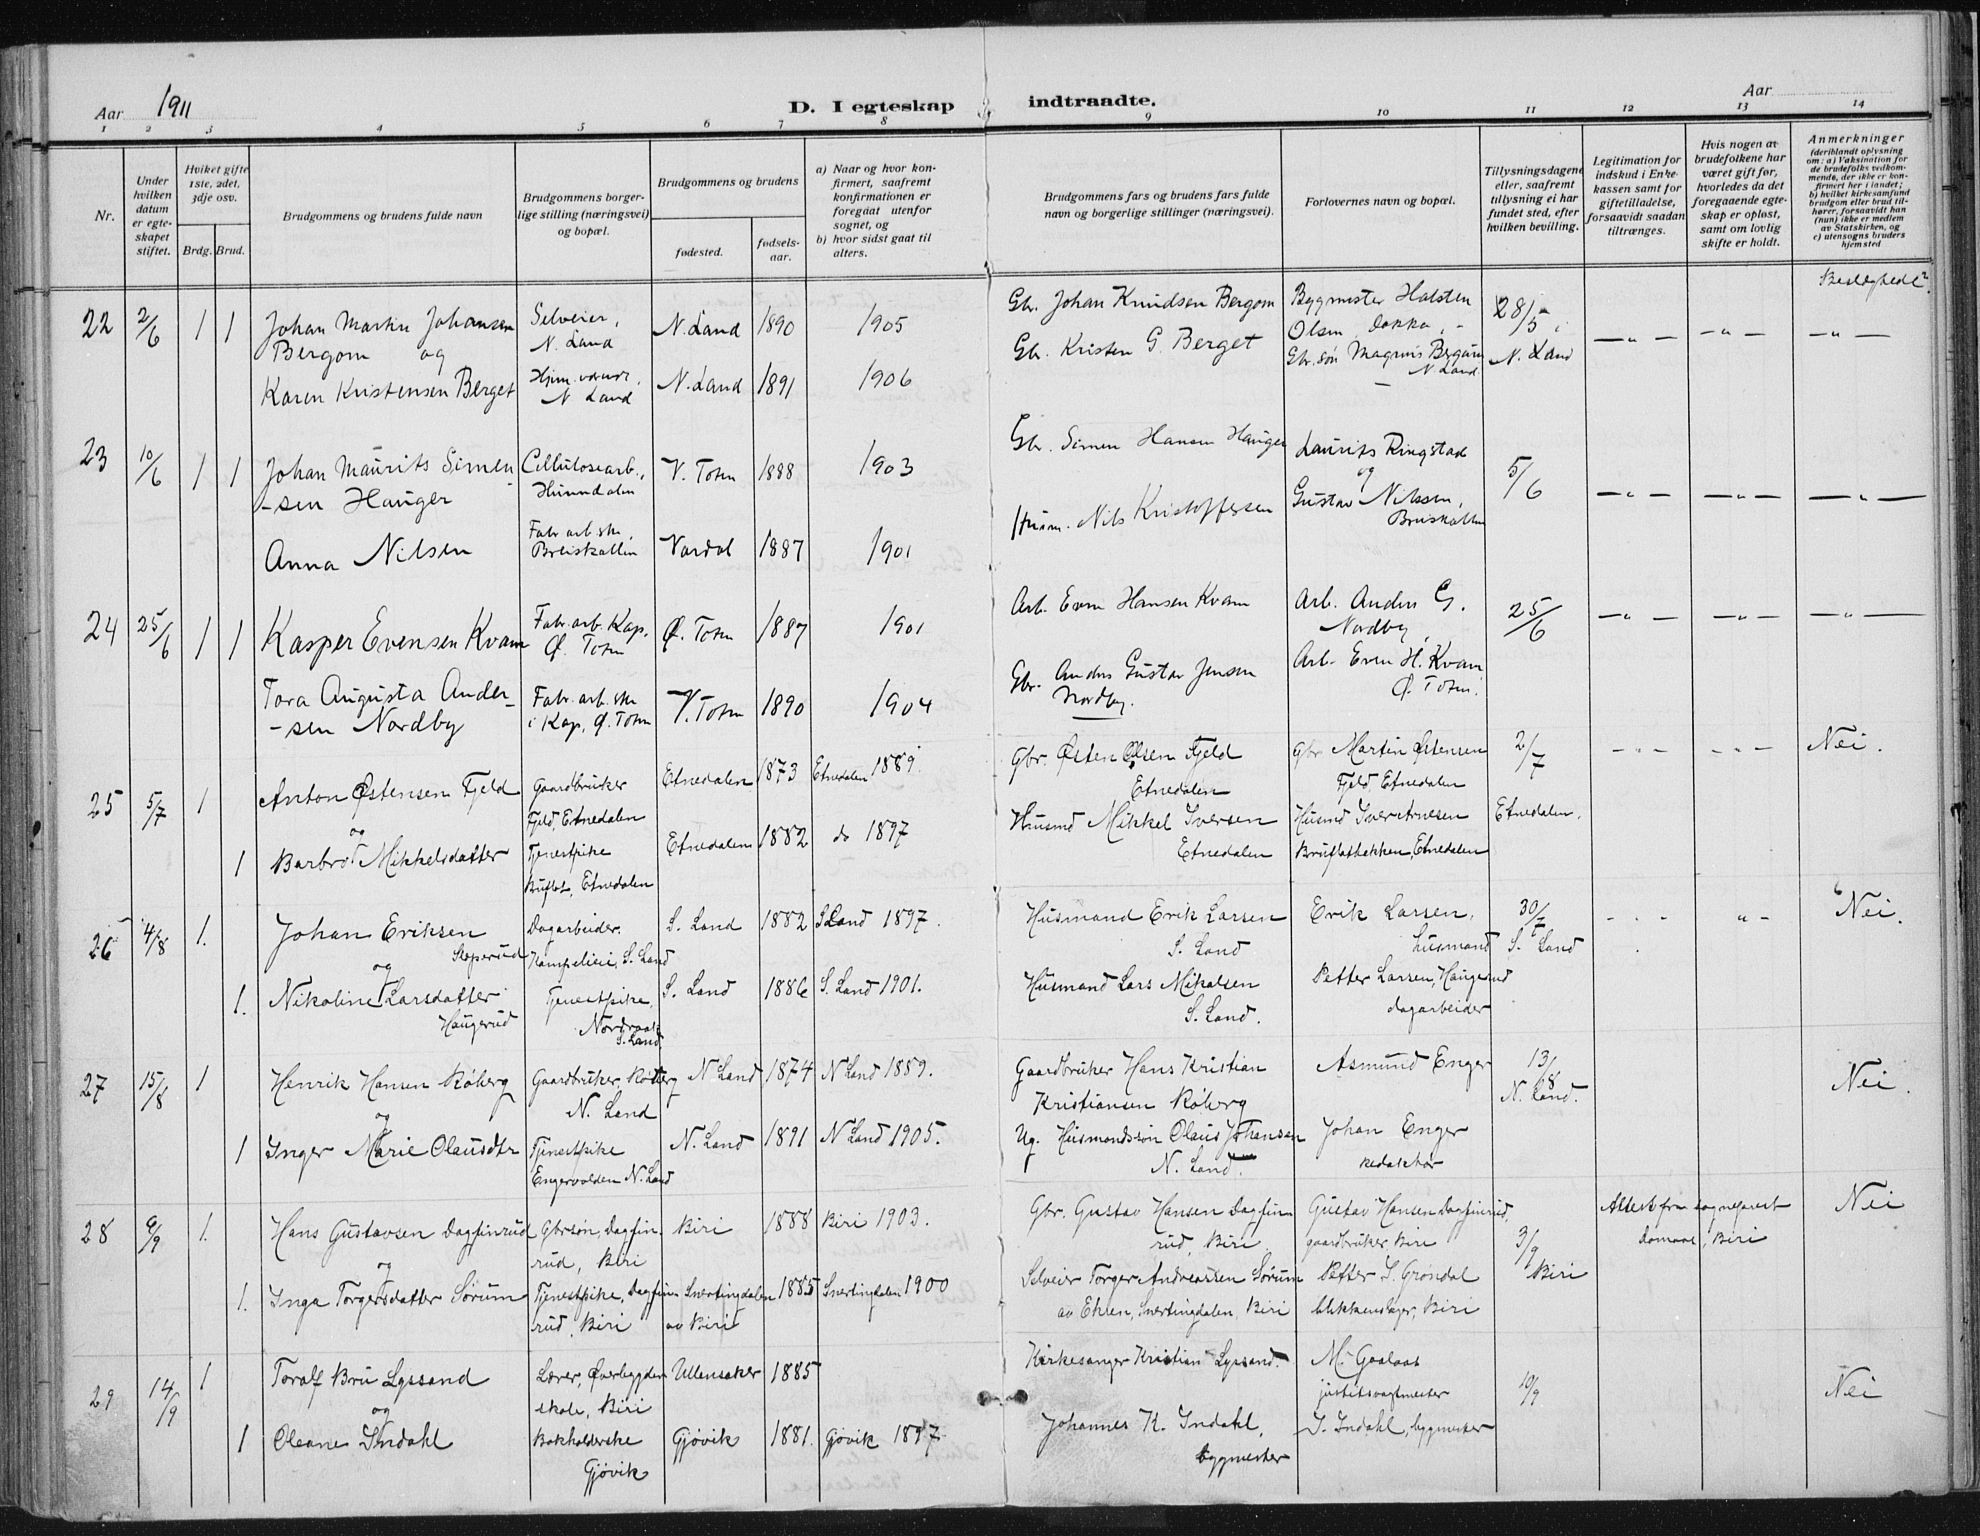 Aar 1911
D. I egteskap indtraadte.
Aar
1 2 3 4 5 6 7 8 9 10 11 12 13 14
Nr.
Under hvilken datum er egteskapet stiftet.
Hviket gifte 1ste, 2det, 3dje osv.
Brdg. Brud.
Brudgommens og brudens fulde navn
Brudgommens borgerlige stilling (næringsvei) og bopæl.
Brudgommens og brudens
fødested.
fødselsaar.
a) Naar og hvor konfirmert, saafremt konfirmationen er foregaat utenfor sognet, og
b) hvor sidst gaat til alters.
Brudgommens fars og brudens fars fulde navn og borgerlige stillinger (næringsvei).
Forlovernes navn og bopæl.
Tillysningsdagene eller, saafremt tillysning ei har fundet sted, efter hvilken bevilling.
Legitimation for indskud i Enkekassen samt for giftetilladelse, forsaavidt saadan tiltrænges.
Hvis nogen av brudefolkene har været gift før, hvorledes da det foregaaende egteskap er opløst, samt om lovlig skifte er holdt.
Anmerkninger
(deriblandt oplysning om: a) Vaksination for de brudefolks vedkommende, der ikke er konfirmert her i landet; b) hvilket kirkesamfund brudgom eller brud tilhører, forsaavidt han (hun) ikke er medlem av Statskirken, og c) utensogns bruders hjemsted
22 2/6 1 1
Johan Martin Johansen
Bergom og
Karen Kristensen Berget
Selveier,
N. Land
N. Land
N. Land 1890 1905
N. Land 1891 1906
Gbr. Johan Knudsen Bergom
Gbr. Kristen G. Berget
Bygmester Halsten
Olsen Dokka, -
Gbr.søn Magnus Bergum
N Land
28/5 i
N. Land
— " —
— " —
— " —
23 10/6 1 1
Johan Maurits Simen-
-sen Hauger
Anna Nilsen
Cellulosearb.,
Hunndalen
Fabr. arb.ske,
Breiskallen
V. Toten 1888 1903
Vardal 1887 1901
Gbr. Simen Hansen Hauger
Husm. Nils Kristoffersen
Laurits Ringstad
og
Gustav Nilssen,
Breiskallen
5/6
— " —
— " —
— " —
24 25/6 1 1
Kasper Evensen Kvam
Tora Augusta Ander-
-sen Nordby
Fabr. arb. Kap,
Ø. Toten
Fabr. arb. ske
i Kap, Ø. Toten
Ø. Toten 1887 1901
V. Toten 1890 1904
Arb. Even Hansen Kvam
Gbr. Anders Gustav Jensen
Nordby.
Arb. Anders G.
Nordby,
Arb. Even H. Kvam
Ø. Toten.
25/6
— " —
— " —
— " —
25 5/7 1
1
Anton Østensen Fjeld
og
Barbro Mikkelsdatter
Gaardbruker
Fjeld, Etnedalen
Tjenestpike
Etnedalen
Etnedalen 1873 Etnedalen 1889.
Etnedalen 1882 do 1897
Gbr. Østen Olsen Fjeld
Etnedalen
Husmd Mikkel Iversen
Etnedalen
Gbr Martin Østensen
Fjeld, Etnedalen
Husmd Iver Arnesen
Bruflatbakken, Etnedalen
2/7
Etnedalen.
- " -
- " -
Nei.
26 4/8 1.
1.
Johan Eriksen
og
Nikoline Larsdatter
Haugerud
Dagarbeider.
S. Land
Tjenestpike,
S. Land
S. Land 1882 S Land 1897.
S. Land 1886 S. Land 1901.
Husmand Erik Larsen
S. Land
Husmand Lars Mikalsen
S. Land.
Erik Larsen,
husmand
Petter Larsen, Haugerud
dagarbeider
30/7
S. Land
- " -
" -
Nei.
27 15/8 1
1
Henrik Hansen Røberg
og
Inger Marie Olausdtr
Gaardbruker, Røberg
N. Land
Tjenestpike
Engervolden N. Land
N Land 1874 N Land 1889.
N. Land 1891 N Land 1905.
Gaardbruker Hans Kristian
Kristiansen Røberg
Ug. Husmandssøn Olaus Johansen
N. Land.
Asmund Enger
Johan Enger
redaktør
13/8
N. Land.
Nei.
28 6/9 1.
1.
Hans Gustavsen Dagfinrud
og
Inga Torgersdatter Sørum
Gbrsøn, Dagfin-
rud, Biri
Tjenestpike, Dagfin-
rud, Biri
Biri 1888 Biri 1903.
Snertingdalen 1885 Snertingdalen 1900
av Biri
Gbr. Gustav Hansen Dagfin-
rud, Biri
Selveier Torger Andreassen Sørum
av Ehren, Snertingdalen, Biri
Gustav Hansen Dagfinrud,
gaardbruker, Biri
Petter S. Grøndal
blikkenslager, Biri
3/9
Biri
Attest fra sogneprest
Biri
Nei
29 14/9 1
1
Toralf Bru Lyssand
og
Oleane Indahl
Lærer, Øverbygden
skole, Biri
Bokholderske
Gjøvik
Ullensaker 1885
Gjøvik 1881. Gjøvik 1897
Kirkesanger Kristian Lyssand.
Johannes K. Indahl,
bygmester
M. Gaalaas
J. Indahl, bygmester
10/9
Nei